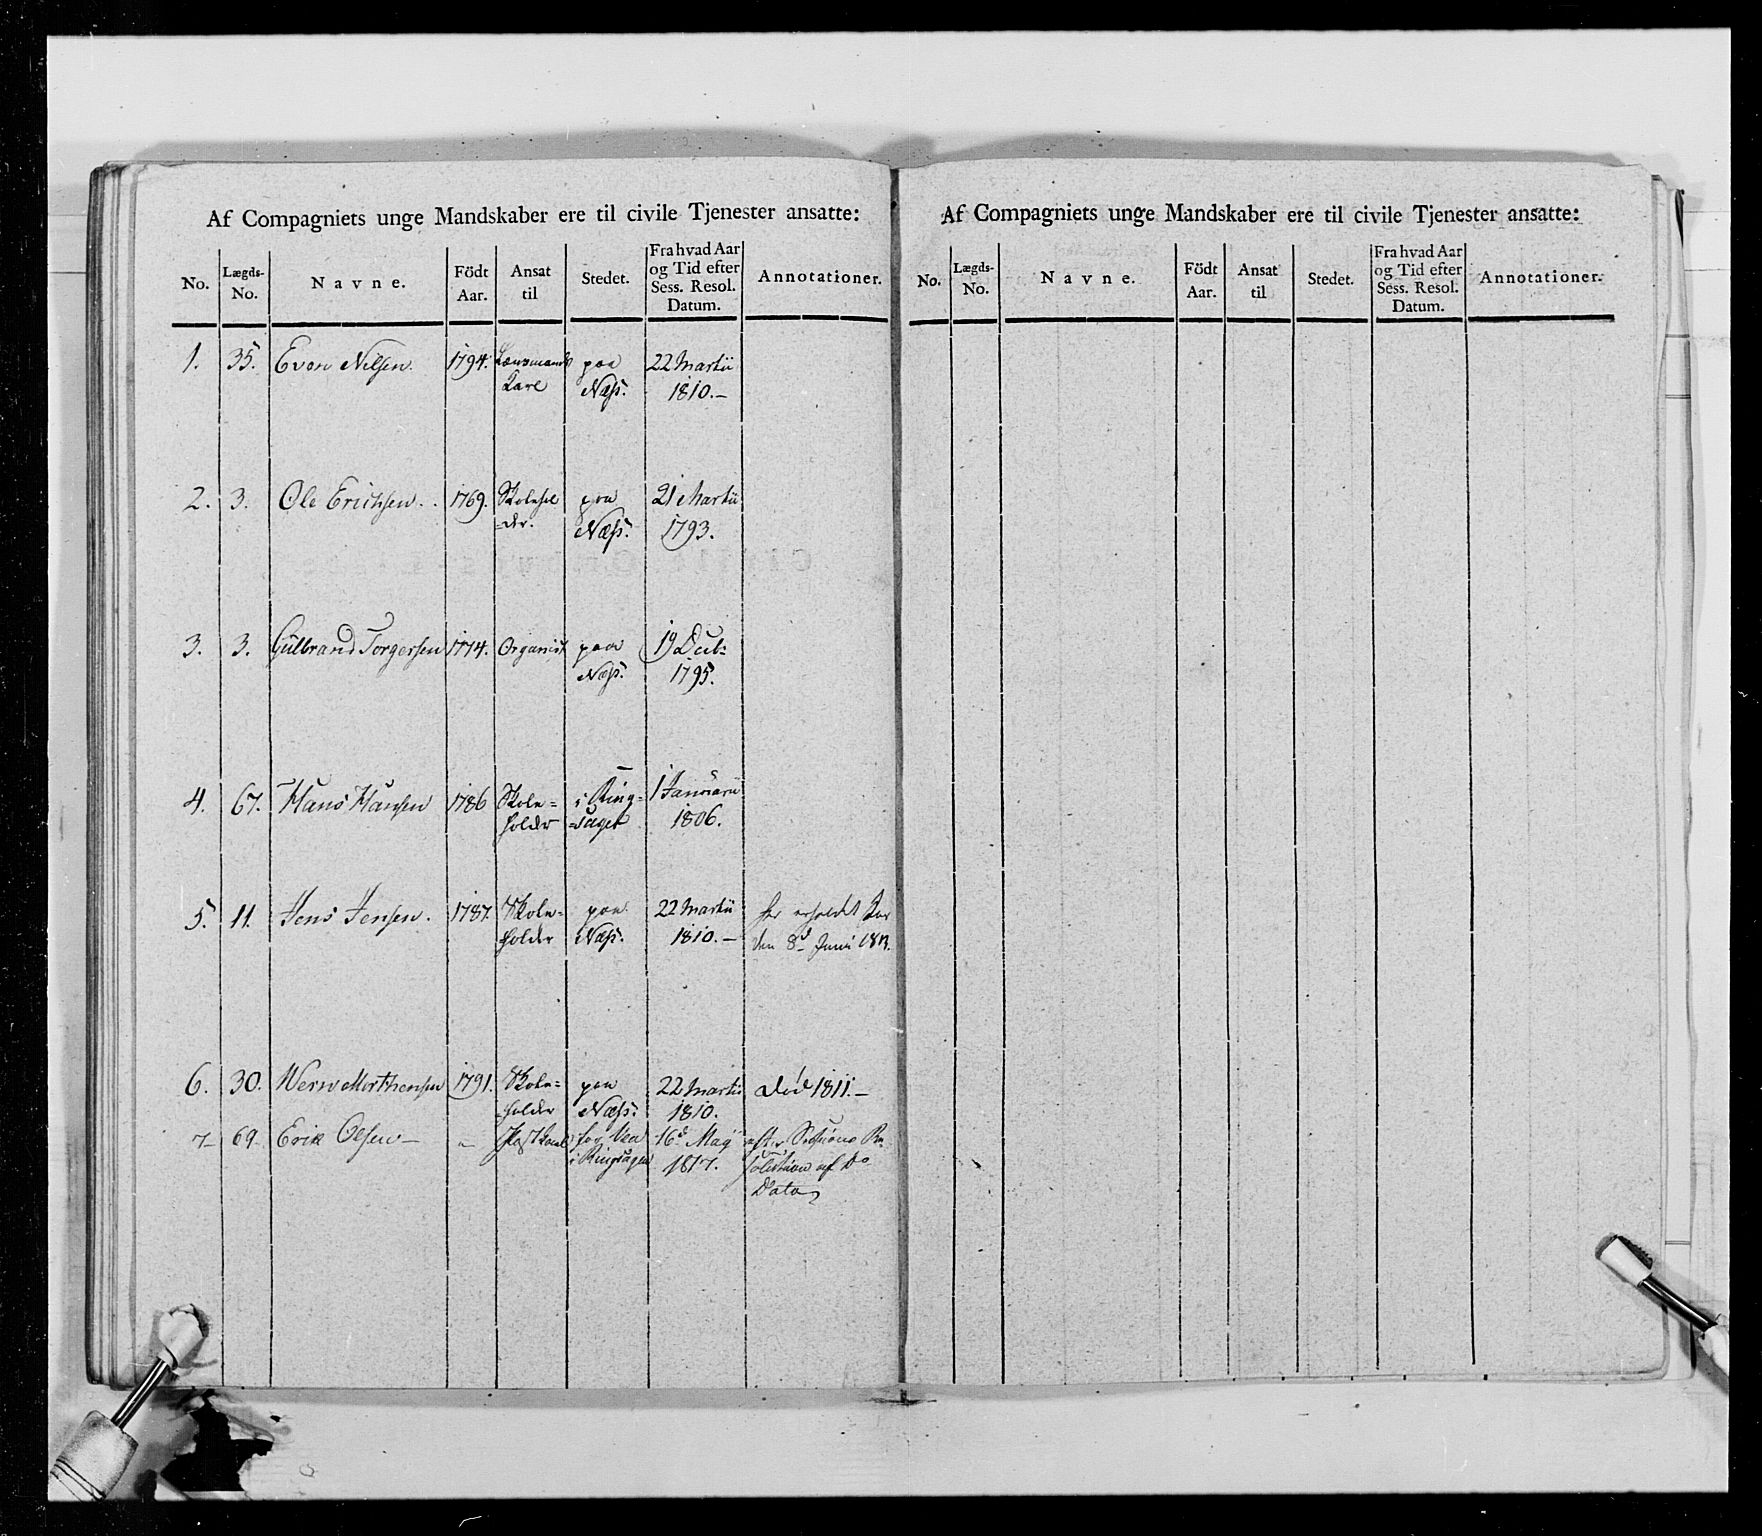 Af Compagniets unge Mandskaber ere til civile Tjenester ansatte:
No. Lægds-No. Navne. Födt Aar. Ansat til Stedet. Fra hvad Aar og Tid efter Sess. Resol. Datum. Annotationer.
1. 35. Even Nilsen. 1794. Lænsmands paa 22 Martii
Karl Næss. 1810.-
2. 3. Ole Erichsen. 1769. Skolehol paa 21 Martii
=der. Næss. 1793.
3. 3. Gulbrand Torgersen 1774. Organist paa 19 Decb:
Næss. 1795.
4. 67. Hans Hansen 1786 Skole= i Ring= 1 Januarii
holder =saget 1806.
5. 11. Jens Jensen. 1787. Skole= paa 22 Martii har erholdet
holder Næss. 1810.- den 8d Juni
6. 30. Morthensen 1791. Skole= paa 22 Martii død 1811.-
holder Næss. 1810.
7- 69. Erik Olsen - " 16d Maij efter Sessions Re
i Ringsager 1817. solution af Do
Dato
Af Compagniets unge Mandskaber ere til civile Tjenester ansatte:
No. Lægds-No. Navne. Födt Aar. Ansat til Stedet. Fra hvad Aar og Tid efter Sess. Resol. Datum. Annotationer.